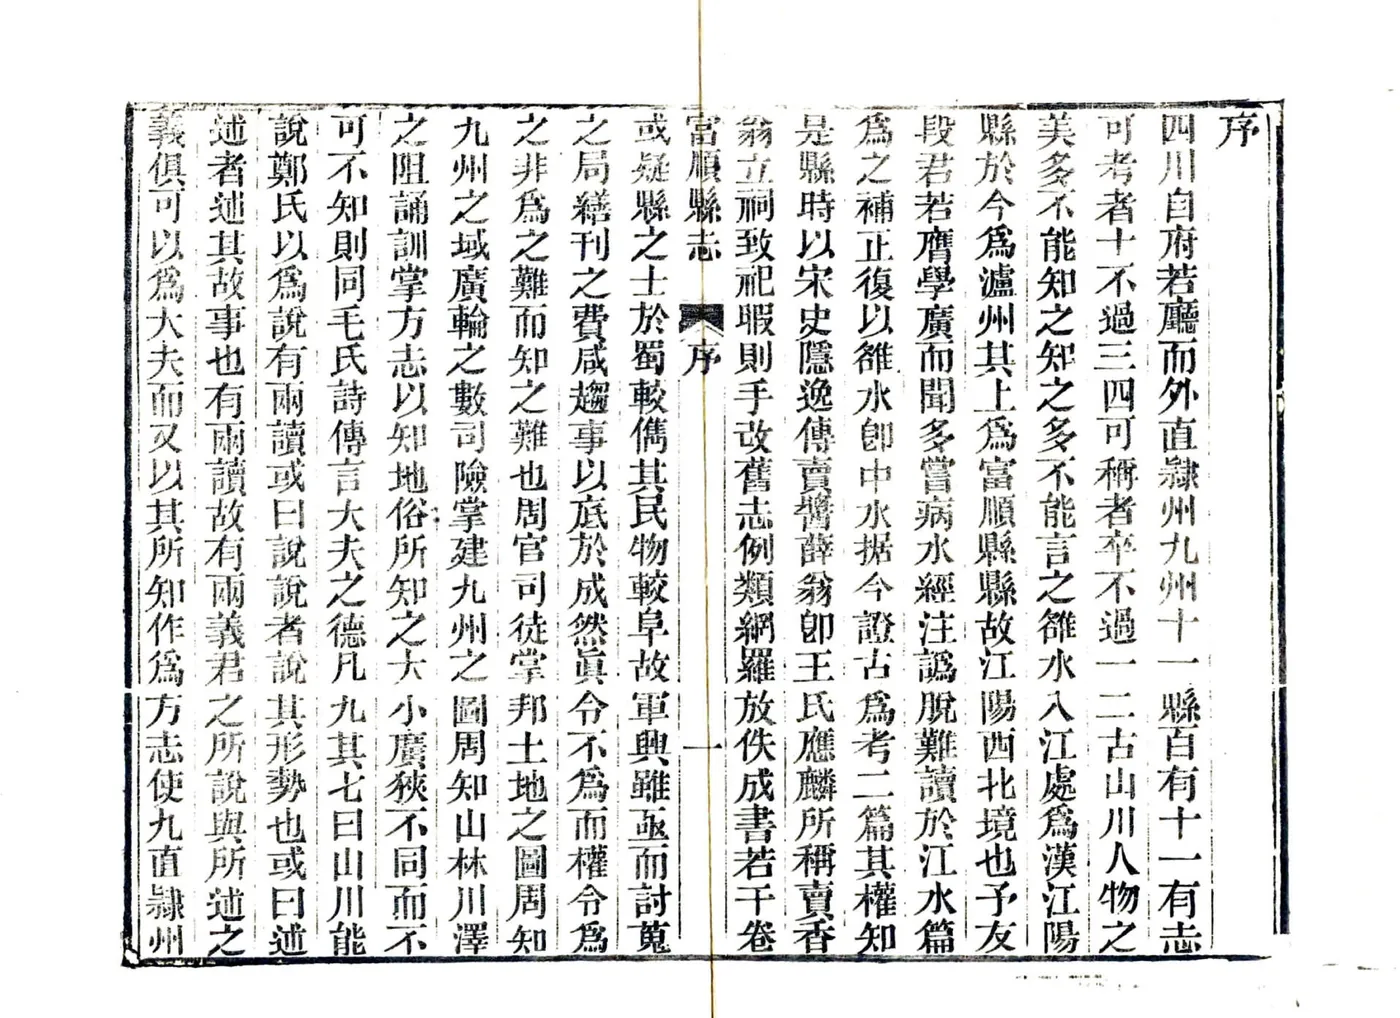 序
四川自府若廳而外直隸州九州十一縣百有十一有志
可考者十不過三四可稱者卒不過一二古山川人物之
美多不能知之知之多不能言之雒水入江處為漢江陽
縣於今為瀘州其上為富順縣縣故江陽西北境也予友
段君若膺學廣而聞多嘗病水經注譌脫難讀於江水篇
為之補正復以雒水卽中水据今證古為考二篇其權知
是縣時以宋史隱逸傳賣醬薛翁卽王氏應麟所稱賣香
翁立祠致祀暇則手改舊志例類網羅放佚成書若干卷
富順縣志 序 一
或疑縣之士於蜀較儁其民物較阜故軍興雖亟而討蒐
之局繕刊之費咸趨事以底於成然眞令不為而權令為
之非為之難而知之難也周官司徒掌邦土地之圖周知
九州之域廣輪之數司險掌建九州之圖周知山林川澤
之阻誦訓掌方志以知地俗所知之大小廣狹不同而不
可不知則同毛氏詩傳言大夫之德凡九其七曰山川能
說鄭氏以為說有兩讀或曰說說者說其形勢也或曰述
述者述其故事也有兩讀故有兩義君之所說與所述之
義俱可以為大夫而又以其所知作為方志使九直隸州